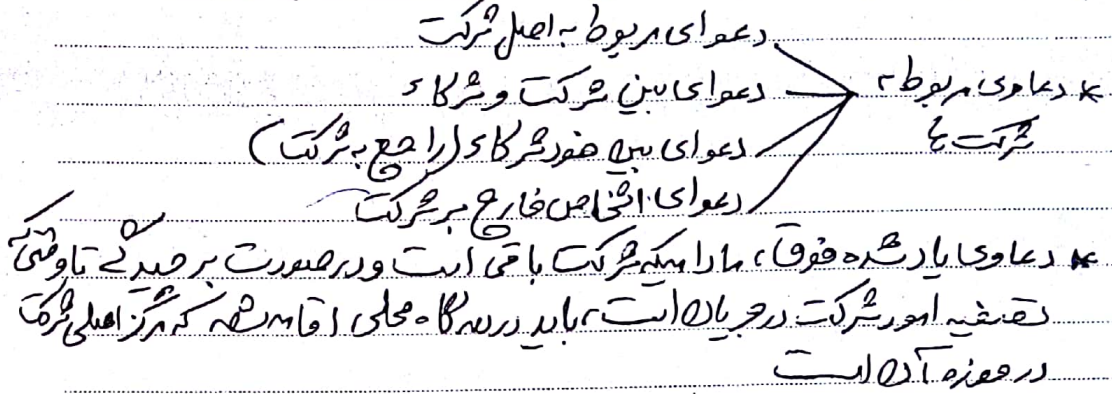 دعوای مربوط به اصل شرکت
* دعاوی مربوط به شرکت ها
دعوای بین شرکت و شرکاء
دعوای بین خود شرکاء (راجع به شرکت)
دعوای اشخاص خارج بر شرکت
* دعاوی یاد شده فوق، مادامیکه شرکت باقی است و در صورت برچیدگی تا وقتی که
تصفیه امور شرکت در جریان است، باید در دادگاه محلی اقامه شود که مرکز اصلی شرکت
در حوزه آن است